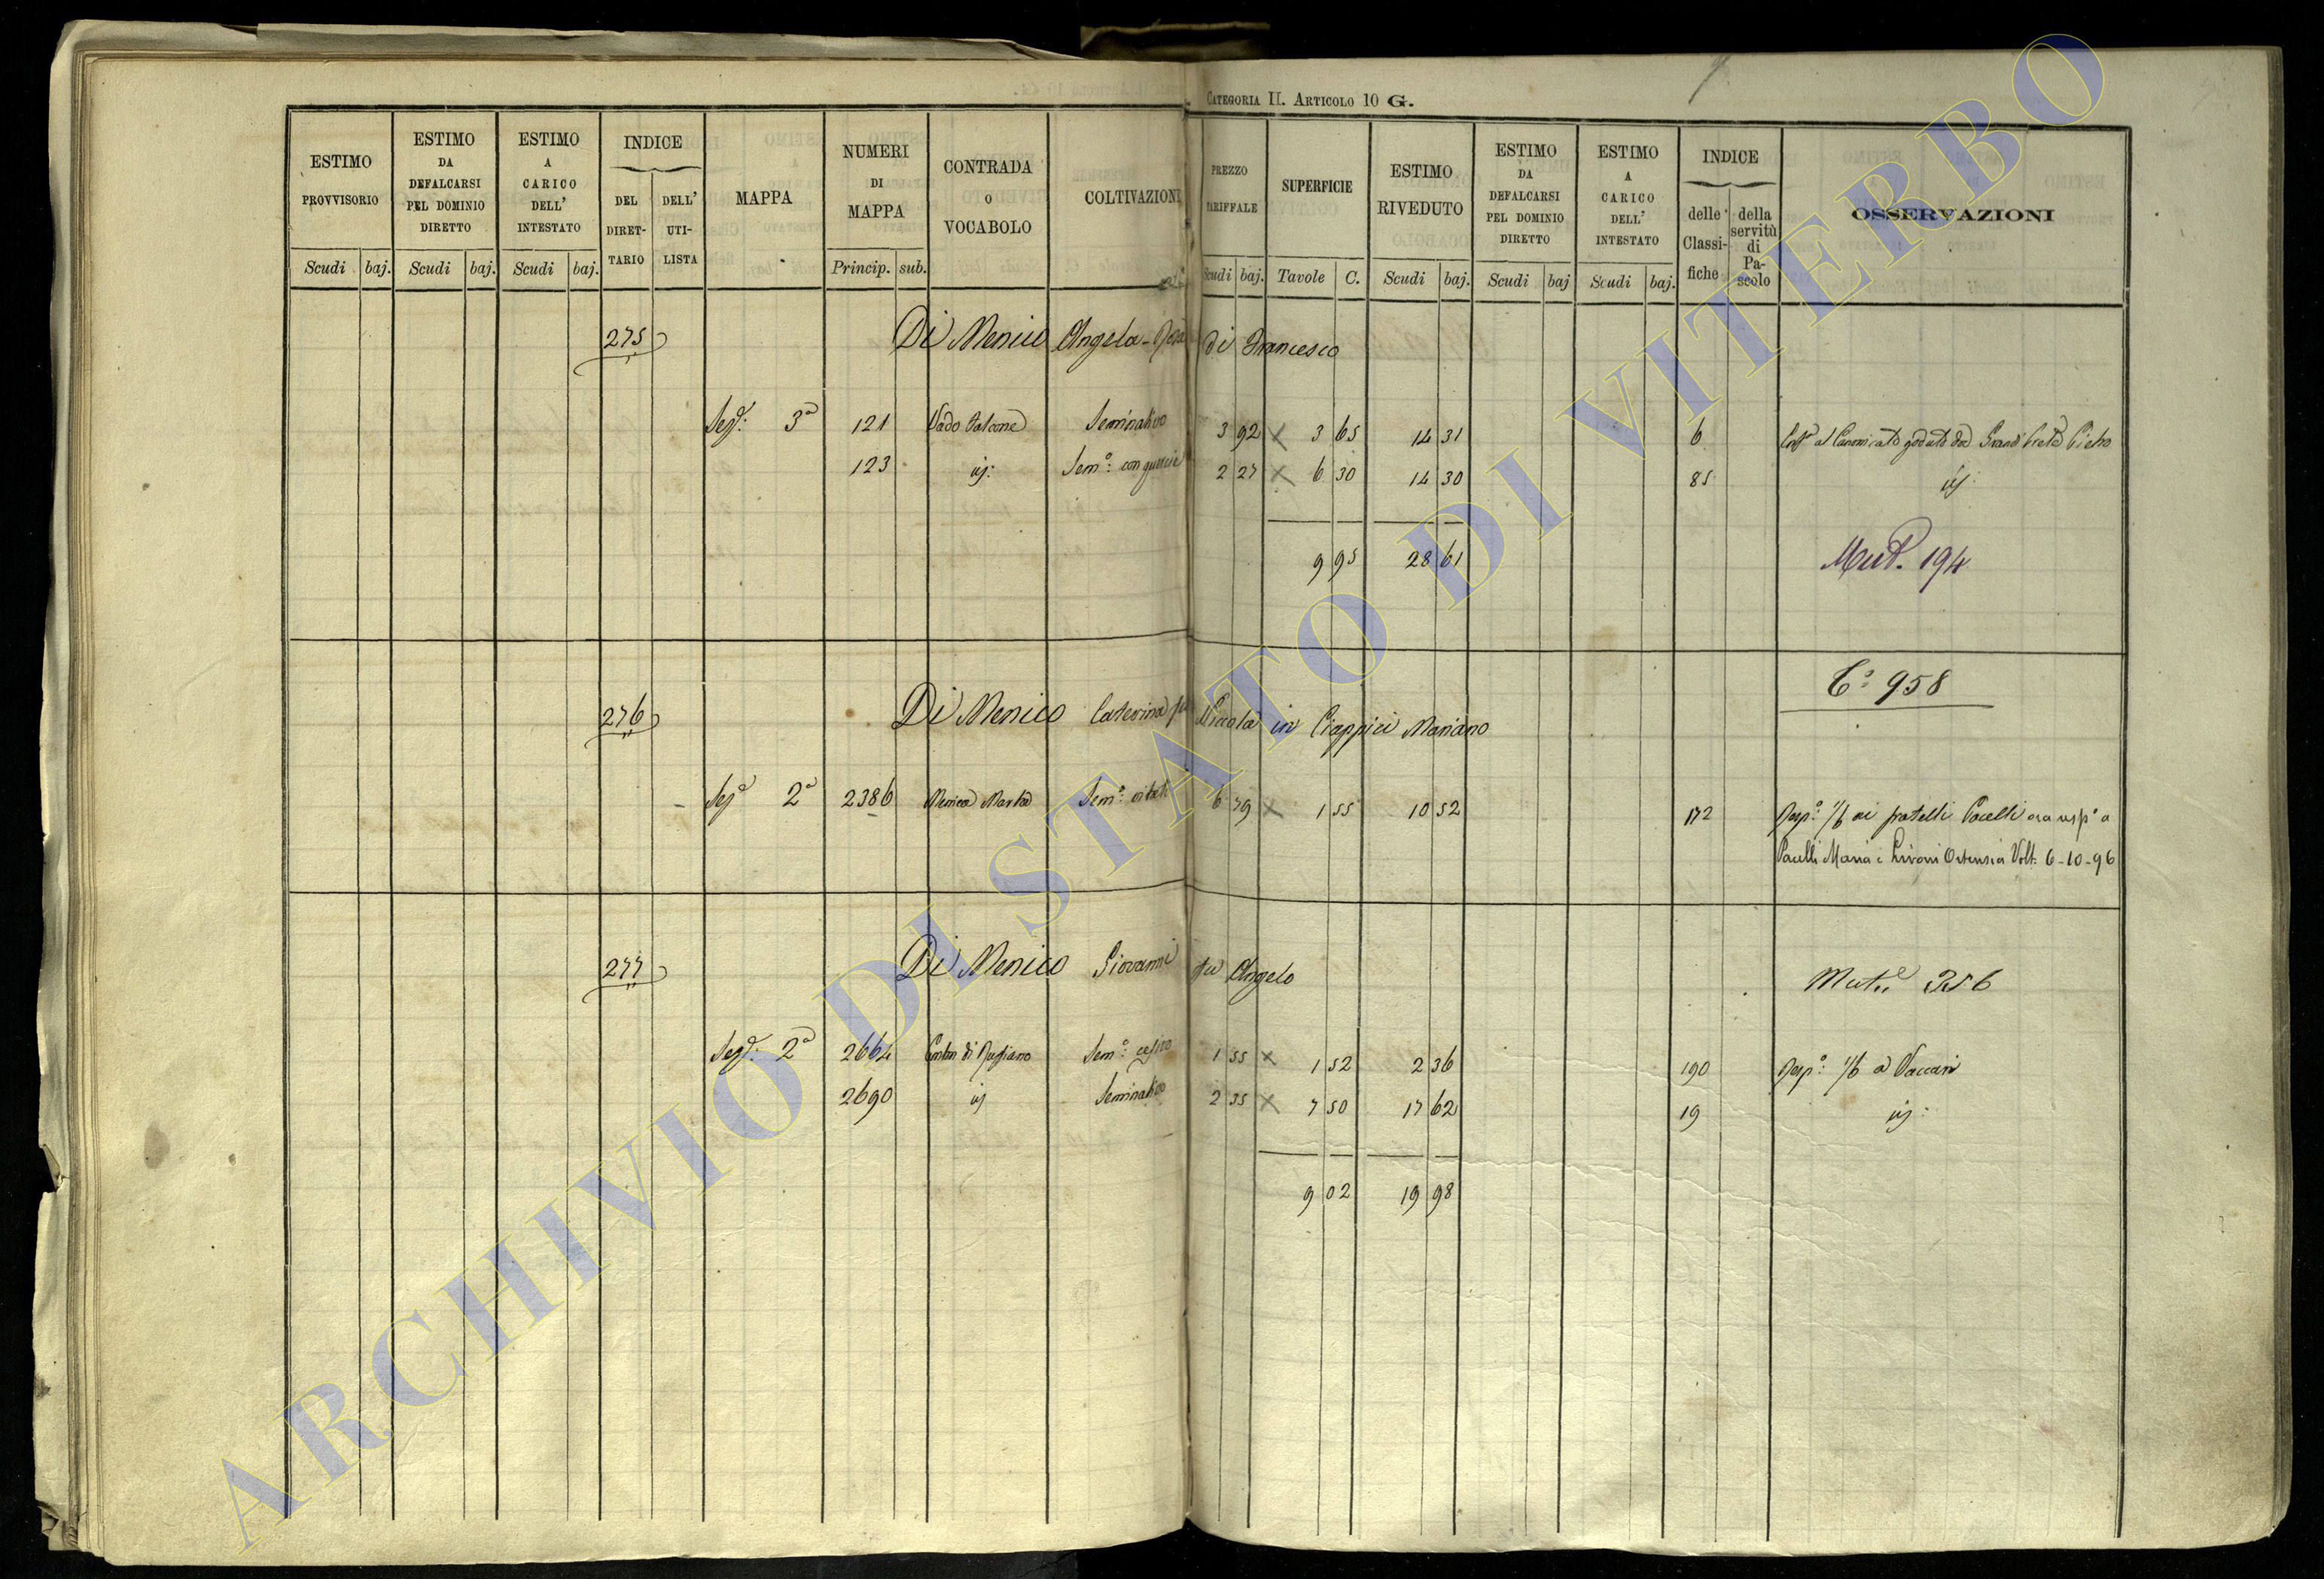 CATEGORIA II. ARTICOLO 10 G.
ESTIMO PROVVISORIO
Scudi baj.
ESTIMO DA DEFALCARSI PEL DOMINIO DIRETTO
Scudi baj.
ESTIMO A CARICO DELL' INTESTATO
Scudi baj.
INDICE
DEL DIRET-TARIO
DELL' UTI-LISTA
MAPPA
NUMERI DI MAPPA
Princip. sub.
CONTRADA O VOCABOLO
COLTIVAZIONI
PREZZO TARIFFALE
Scudi baj.
SUPERFICIE
Tavole C.
ESTIMO RIVEDUTO
Scudi baj.
ESTIMO DA DEFALCARSI PEL DOMINIO DIRETTO
Scudi baj
ESTIMO A CARICO DELL' INTESTATO
Scudi baj.
INDICE
delle Classi-fiche
della servitù di Pa-scolo
OSSERVAZIONI
275 Di Menico Angela di Francesco
3ª 121 Vado Seminativo 3 92 3 65 14 31 6 al Canonicato goduto Pietro
123 Sem.° con 2 27 6 30 14 30 85
9 95 28 61
Mut. 194
C° 958
276 Di Menico Caterina Nicola in Ciappici Mariano
2ª 2386 Menica Marta Sem.° vitato 6 79 1 55 10 52 172 Resp.° 1/6 ai fratelli Pacelli ora a
Pacelli Maria e Ortensia Volt. 6-10-96
277 Di Menico Giovanni fu Angelo
356
2ª 2664 di Sem.° 1 55 1 52 2 36 190 Resp.° 1/6 a Vaccari
2690 Seminativo 2 35 7 50 17 62 19
9 02 19 98
ARCHIVIO DI STATO DI VITERBO